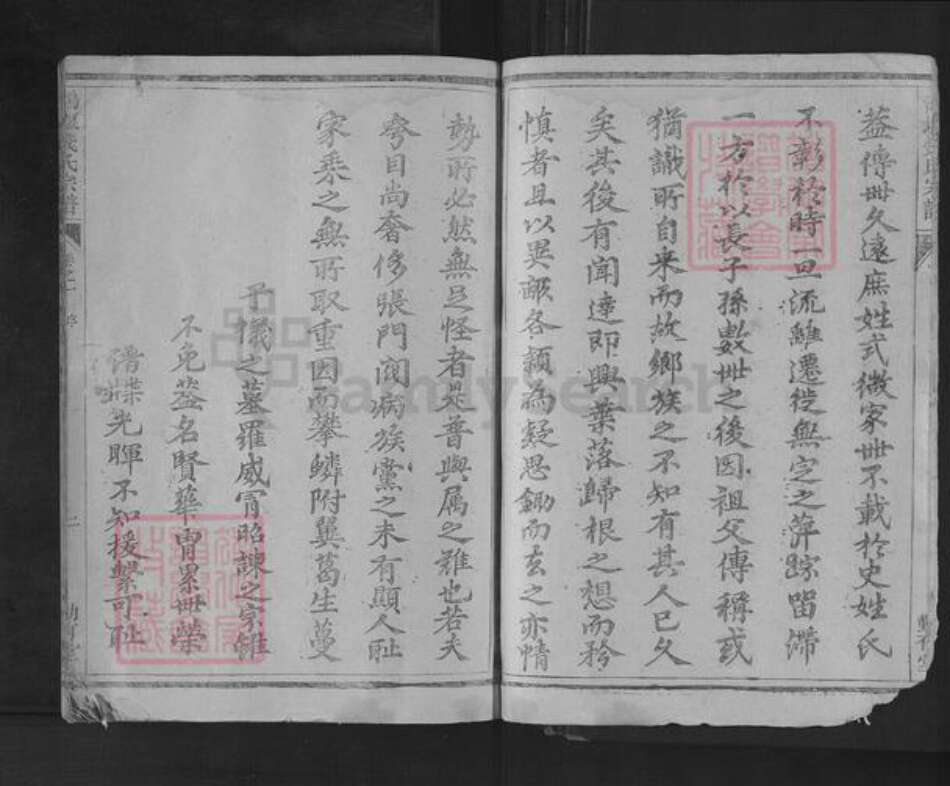 蓋傳世久遠庶姓式微家世不載於史姓氏
不彰於時一旦流離遷徙無定之萍踪留滯
一方於以長子孫數世之後因祖父傳稱或
猶識所自来而故鄉族之不知有其人已久
矣其後有聞達即興葉落歸根之想而矜
慎者且以異派各類為疑思鋤而去之亦情
勢所必然無足怪者是普與属之難也若夫
夸目尚奢侈張門閥病族黨之未有顯人耻
家乗之無所取重因而攀鱗附翼葛生蔓
予儀之墓羅威甯昭諫之宗雖
不免盗名賢華胄累世榮
譜牒光暉不知援繫可耻
氏宗譜
二
FamilySearch